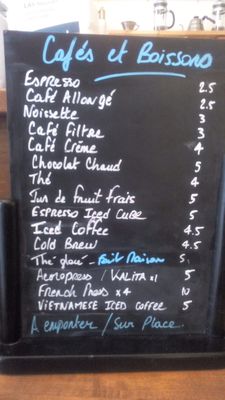 Cafés et Boissons
Espresso 2.5
Café Allongé 2.5
Noisette 3
Café Filtre 3
Café Crème 4
Chocolat Chaud 5
Thé 4
Jus de fruit frais 5
Espresso Iced Cube 5
Iced Coffee 4.5
Cold Brew 4.5
Thé glacé - Fait Maison 5
Aeropress / Kalita x1 5
French Press x4 10
Vietnamese Iced Coffee 5
A emporter / Sur Place.